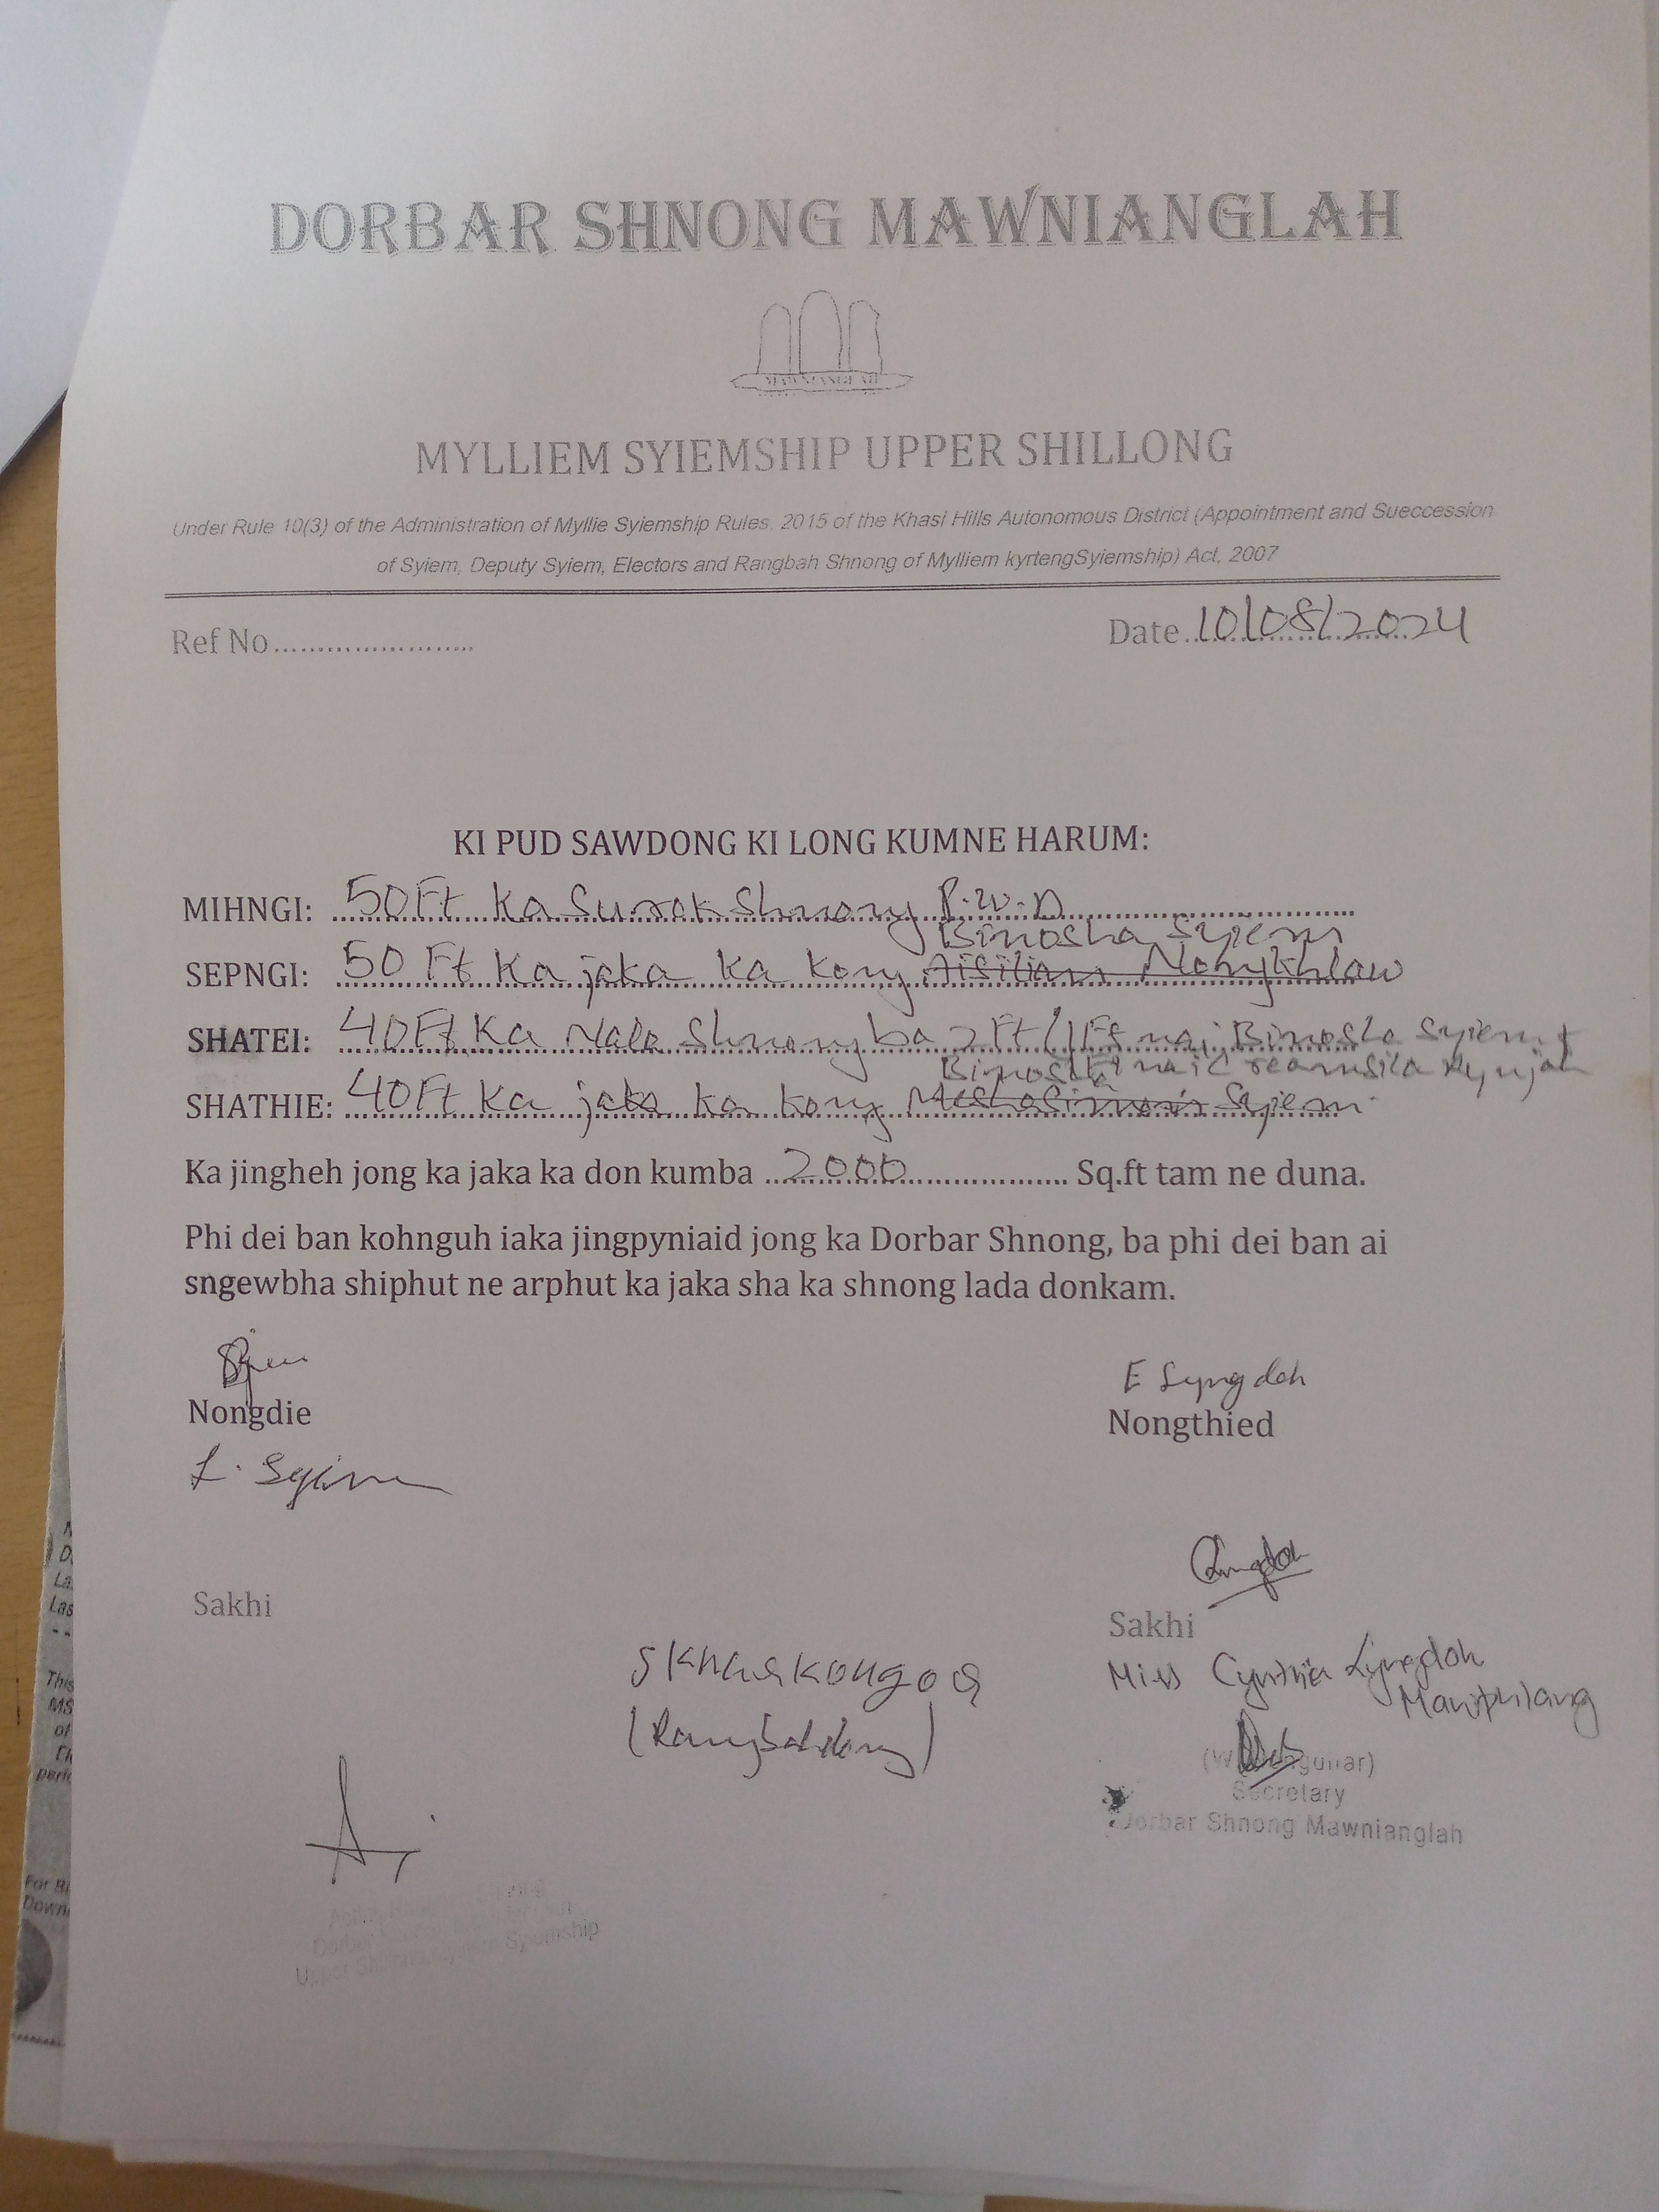 DORBAR SHNONG MAWNIANGLAH
MAWNIANGLAH
MYLLIEM SYIEMSHIP UPPER SHILLONG
Under Rule 10(3) of the Administration of Myllie Syiemship Rules, 2015 of the Khasi Hills Autonomous District (Appointment and Sueccession
of Syiem, Deputy Syiem, Electors and Rangbah Shnong of Mylliem kyrtengSyiemship) Act, 2007
Ref No........................
Date..10/08/2024
KI PUD SAWDONG KI LONG KUMNE HARUM:
MIHNGI: 50Ft Ka Surok Shnong P.W.D
Binosha Syiem
SEPNGI: 50 Ft Ka jaka ka kong Nongkhlaw
SHATEI: 40Ft Ka Nala Shnong ba 2Ft/1Ft naj Binosha Syiem +
1Ft na ka Kynjah
Binosha
SHATHIE: 40Ft Ka jaka ka kong Syiem
Ka jingheh jong ka jaka ka don kumba ..2000.......................... Sq.ft tam ne duna.
Phi dei ban kohnguh iaka jingpyniaid jong ka Dorbar Shnong, ba phi dei ban ai
sngewbha shiphut ne arphut ka jaka sha ka shnong lada donkam.
E Lyngdoh
Nongdie
Nongthied
L. Syiem
Sakhi
Sakhi
S Kharkongor
Miss Cynthia Lyngdoh
Mawphlang
Secretary
Dorbar Shnong Mawnianglah
Syiemship